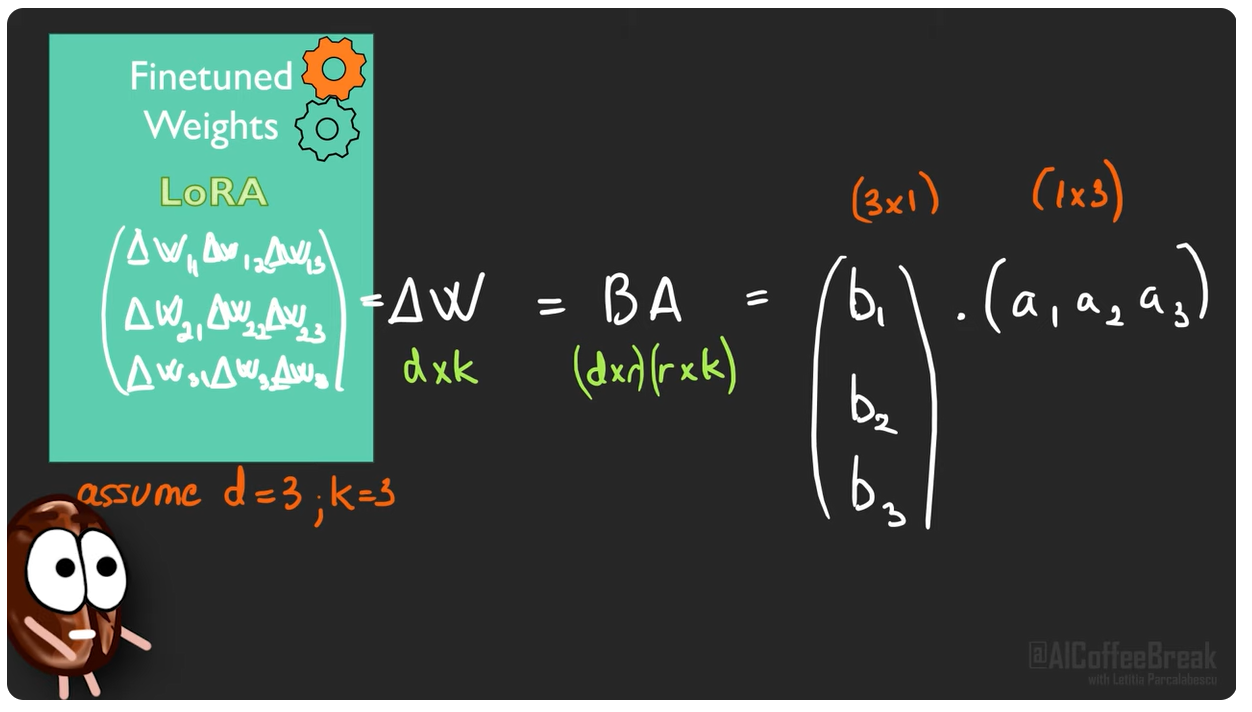 Finetuned
Weights
LoRA
(ΔW₁₁ ΔW₁₂ ΔW₁₃
ΔW₂₁ ΔW₂₂ ΔW₂₃
ΔW₃₁ ΔW₃ ΔW₃) = ΔW = BA = (b₁ b₂ b₃) · (a₁ a₂ a₃)
d x k
(d x r)(r x k)
(3 x 1) (1 x 3)
assume d = 3 ; k = 3
@AICoffeeBreak
with Letitia Parcalabescu